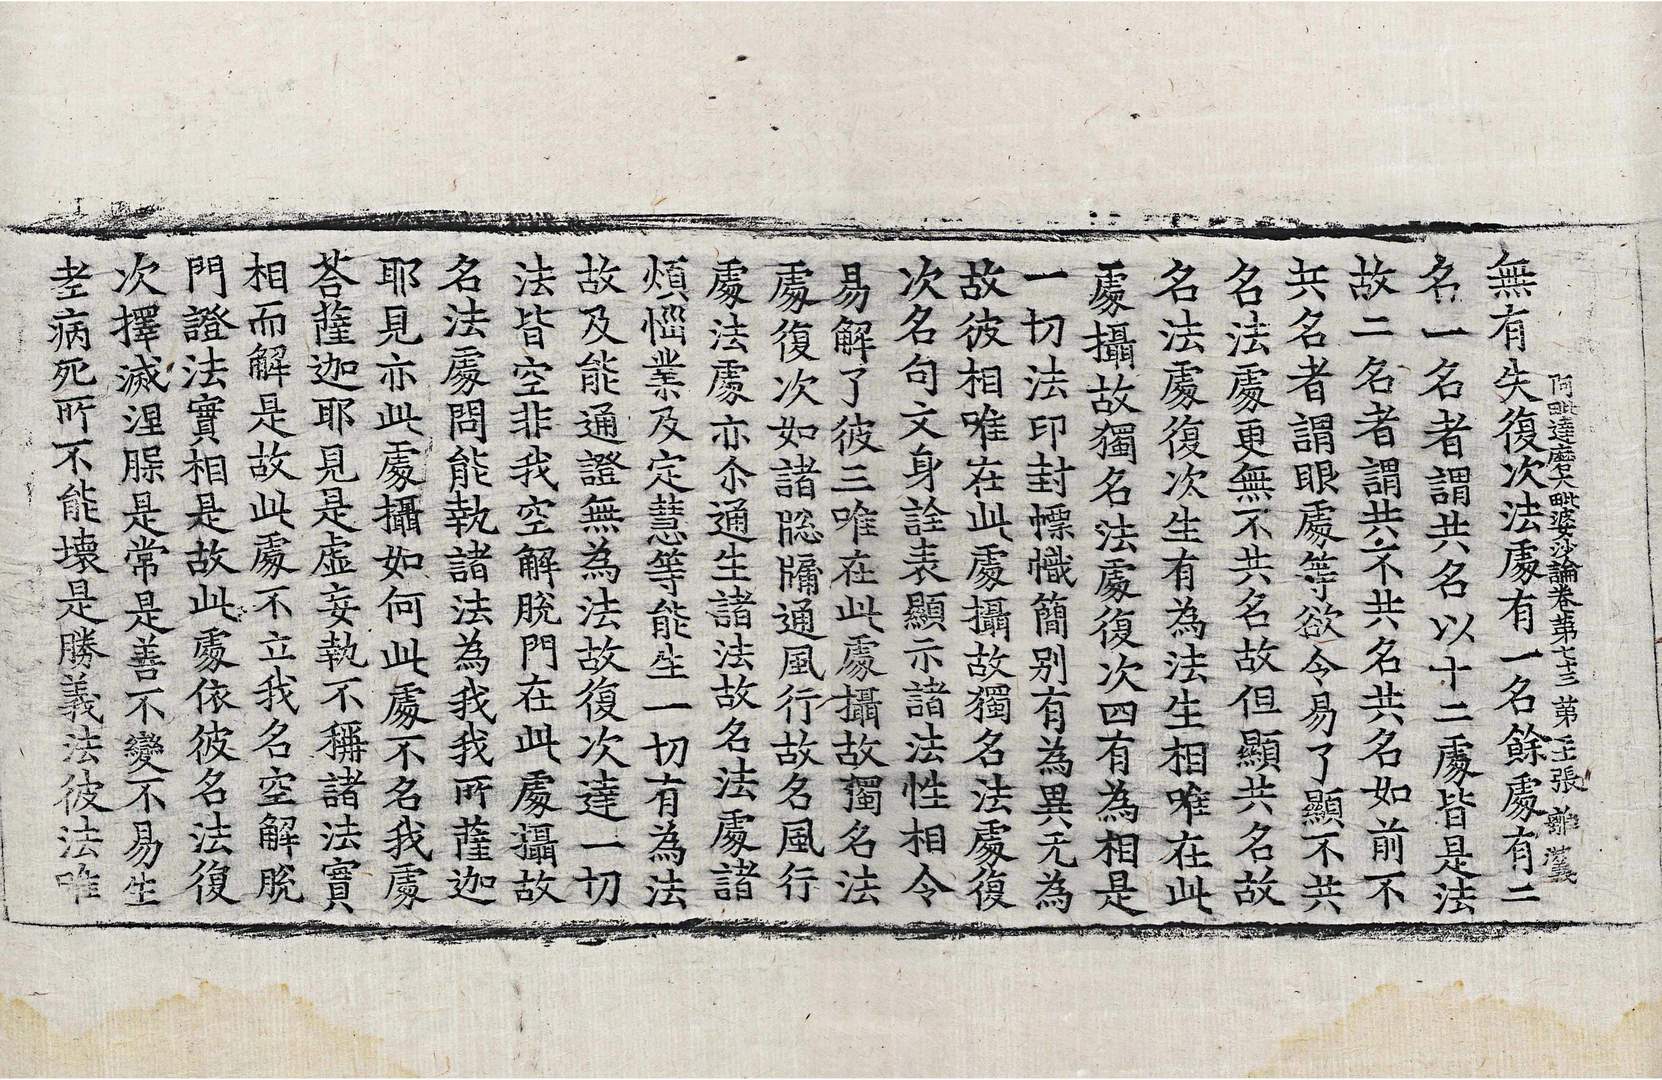 阿毗達磨大毗婆沙論卷第七十三 第五張 離 漢義
無有失復次法處有一名餘處有二
名一名者謂共名以十二處皆是法
故二名者謂共不共名共名如前不
共名者謂眼處等欲令易了顯不共
名法處更無不共名故但顯共名故
名法處復次生有為法生相唯在此
處攝故獨名法處復次四有為相是
一切法印封幖幟簡别有為異无為
故彼相唯在此處攝故獨名法處復
次名句文身詮表顯示諸法性相令
易解了彼三唯在此處攝故獨名法
處復次如諸牎牖通風行故名風行
處法處亦尒通生諸法故名法處諸
煩惱業及定慧等能生一切有為法
故及能通證無為法故復次達一切
法皆空非我空解脫門在此處攝故
名法處問能執諸法為我我所薩迦
耶見亦此處攝如何此處不名我處
荅薩迦耶見是虛妄執不稱諸法實
相而解是故此處不立我名空解脫
門證法實相是故此處依彼名法復
次擇滅涅槃是常是善不變不易生
老病死所不能壞是勝義法彼法唯